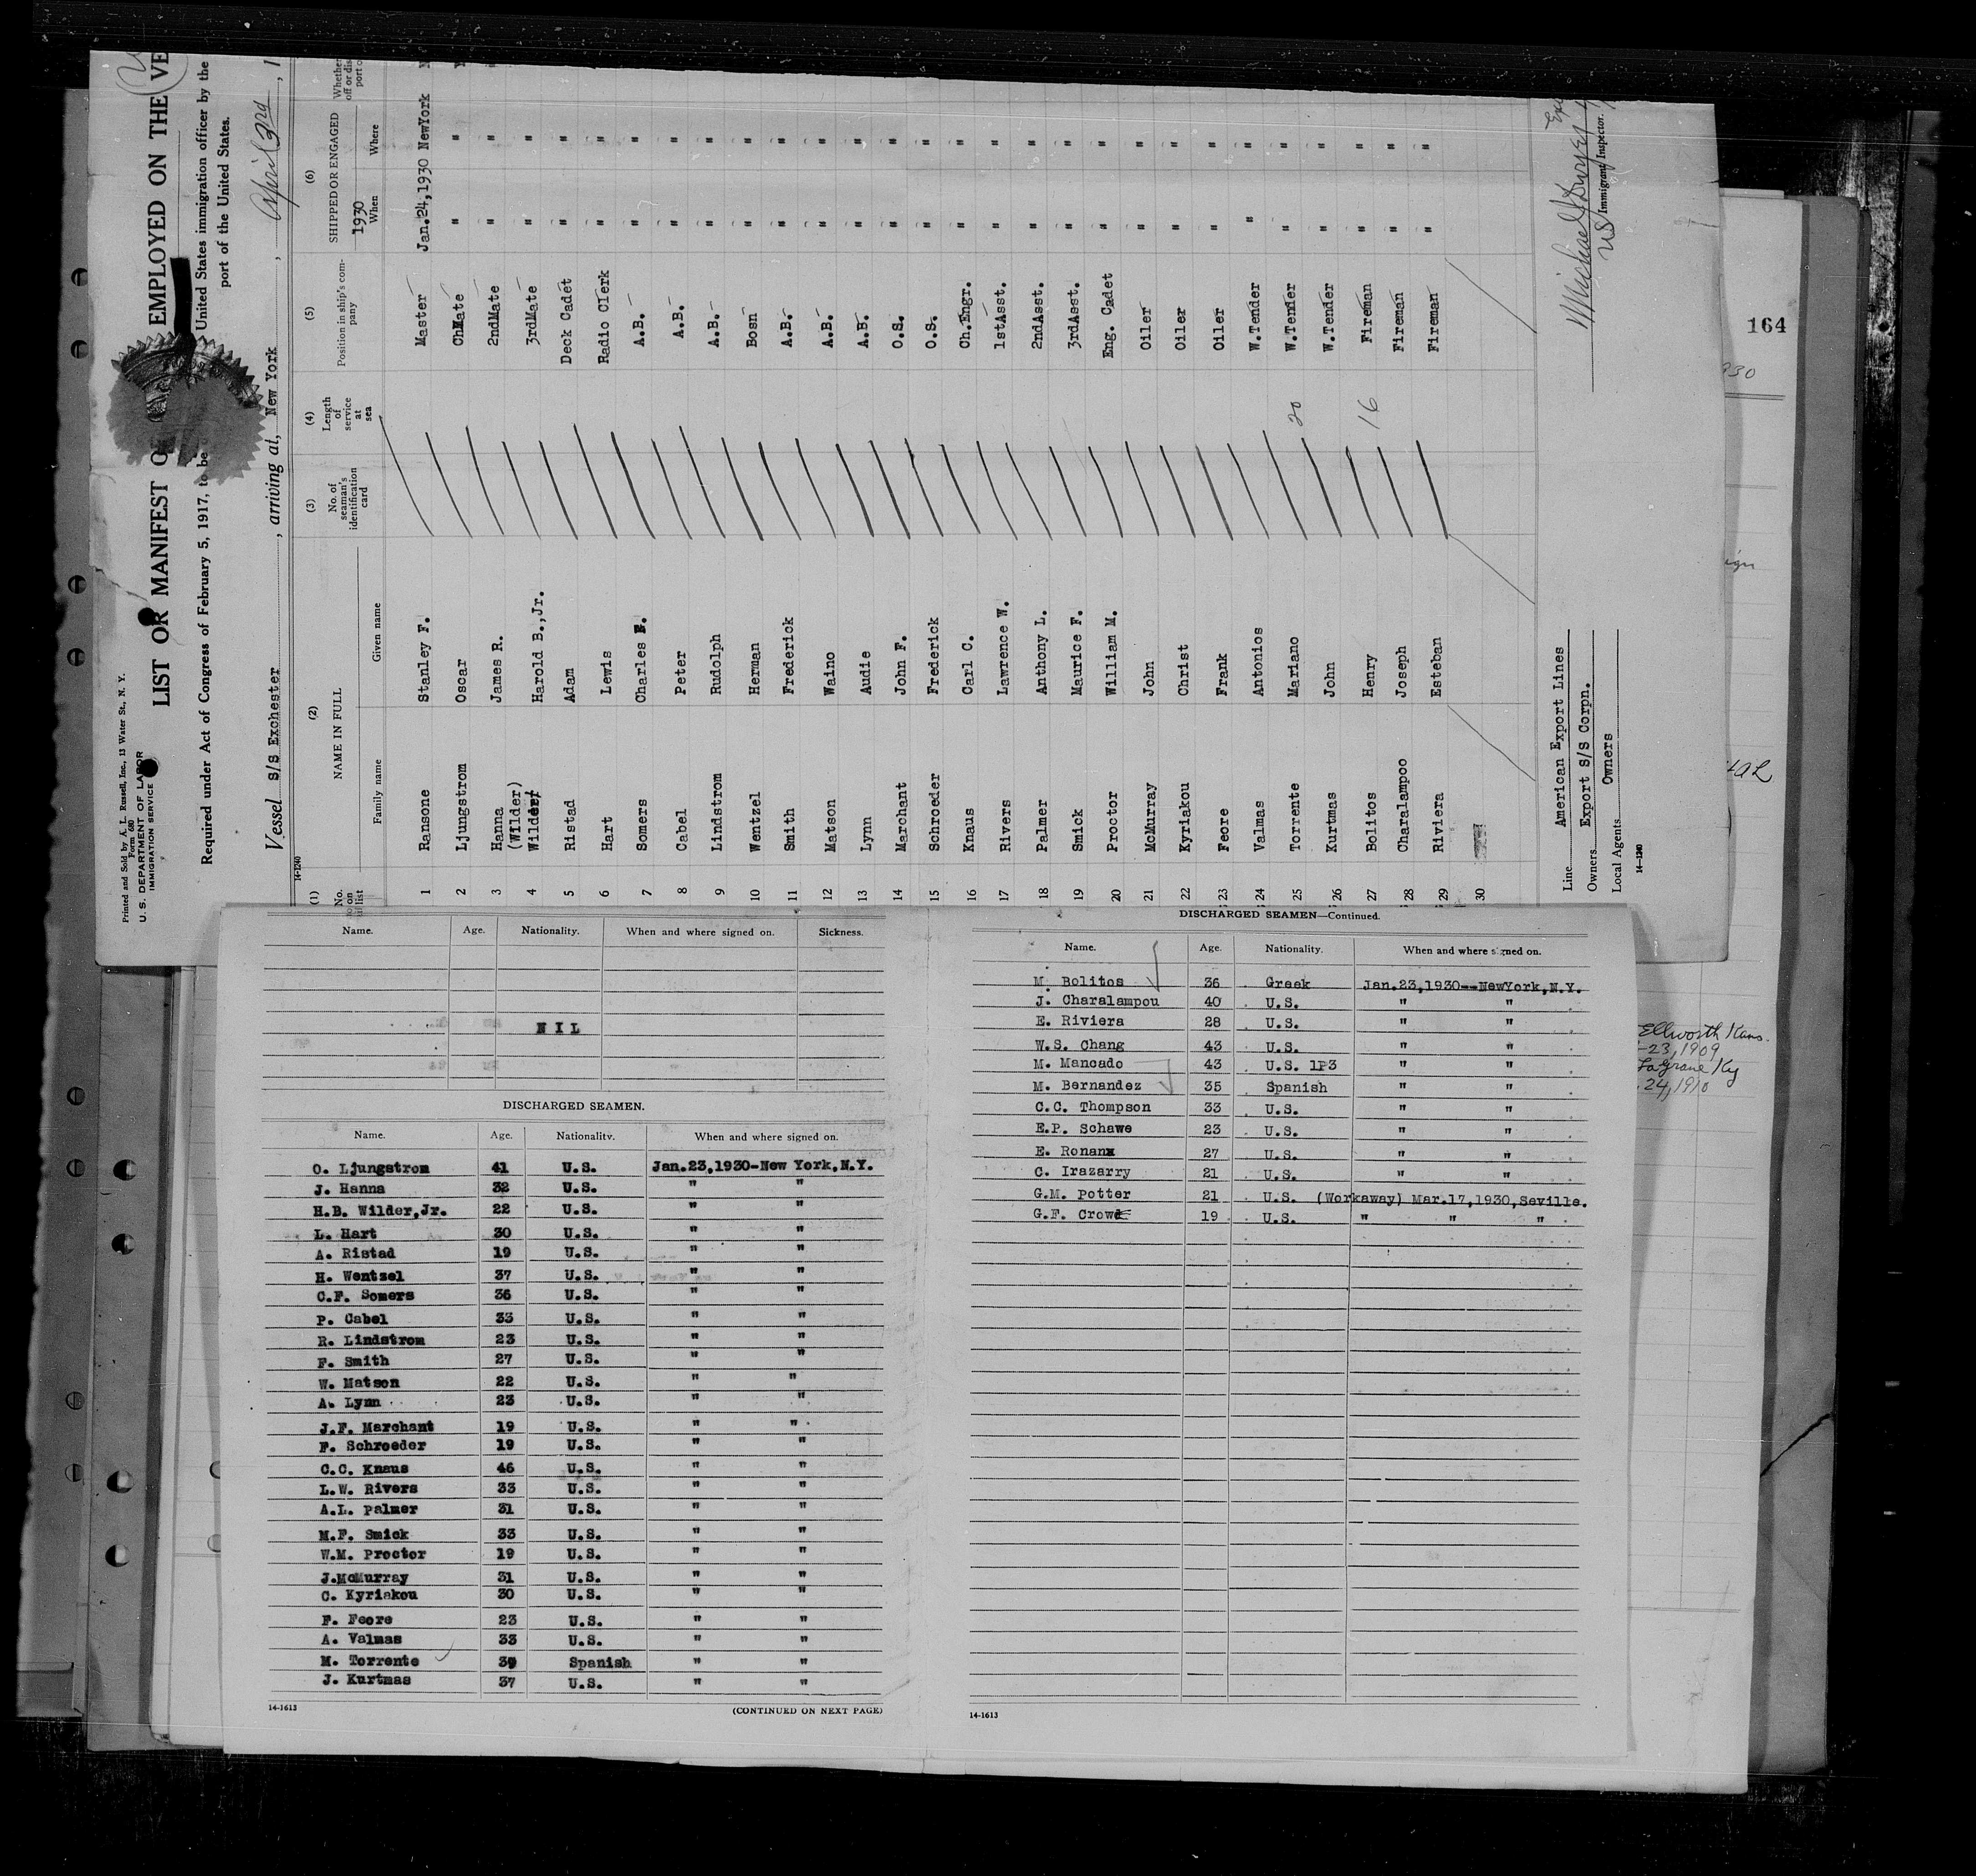 Printed and Sold by A. L. Russell, Inc., 13 Water St., N. Y.
Form 680
U. S. DEPARTMENT OF LABOR
IMMIGRATION SERVICE
LIST OR MANIFEST O EMPLOYED ON THE VE
Required under Act of Congress of February 5, 1917, to be United States immigration officer by the
port of the United States.
Vessel S/S Exchester, arriving at, New York, April 3rd, 1
14-1240
(1) (2) (3) (4) (5) (6)
No. on list NAME IN FULL No. of seaman's identification card Length of service at sea Position in ship's company SHIPPED OR ENGAGED Whether
off or dis
port o
1930
Family name Given name When Where
1 Ransone Stanley F. Master Jan.24,1930 NewYork N
2 Ljungstrom Oscar ChMate " "
3 Hanna James R. 2ndMate " "
(Wilder)
4 Wilder Harold B.,Jr. 3rdMate " "
5 Ristad Adam Deck Cadet " "
6 Hart Lewis Radio Clerk " "
7 Somers Charles F. A.B. " "
8 Cabel Peter A.B. " "
9 Lindstrom Rudolph A.B. " "
10 Wentzel Herman Bosn " "
11 Smith Frederick A.B. " "
12 Matson Waino A.B. " "
13 Lynn Audie A.B. " "
14 Marchant John F. O.S. " "
15 Schroeder Frederick O.S. " "
16 Knaus Carl C. Ch.Engr. " "
17 Rivers Lawrence W. 1stAsst. " "
18 Palmer Anthony L. 2ndAsst. " "
19 Smick Maurice F. 3rdAsst. " "
20 Proctor William M. Eng. Cadet " "
21 McMurray John Oiler " "
22 Kyriakou Christ Oiler " "
23 Feore Frank Oiler " "
24 Valmas Antonios W.Tender " "
25 Torrente Mariano 20 W.Tender " "
26 Kurtmas John W.Tender " "
27 Bolitos Henry 16 Fireman " "
28 Charalampoo Joseph Fireman " "
29 Riviera Esteban Fireman " "
30
Line American Export Lines
Owners Export S/S Corpn.
Local Agents Owners
14-1240
US Immigrant Inspector.
164
930
Ellworth Kans.
-23, 1909
LaGrane Ky
. 24, 1910
Name. Age. Nationality. When and where signed on. Sickness.
NIL
DISCHARGED SEAMEN.
Name. Age. Nationality. When and where signed on.
O. Ljungstrom 41 U.S. Jan.23,1930-New York,N.Y.
J. Hanna 32 U.S. " "
H.B. Wilder,Jr. 22 U.S. " "
L. Hart 30 U.S. " "
A. Ristad 19 U.S. " "
H. Wentzel 37 U.S. " "
C.F. Somers 36 U.S. " "
P. Cabel 33 U.S. " "
R. Lindstrom 23 U.S. " "
F. Smith 27 U.S. " "
W. Matson 22 U.S. " "
A. Lynn 23 U.S. " "
J.F. Marchant 19 U.S. " "
F. Schroeder 19 U.S. " "
C.C. Knaus 46 U.S. " "
L.W. Rivers 33 U.S. " "
A.L. Palmer 31 U.S. " "
M.F. Smick 33 U.S. " "
W.M. Proctor 19 U.S. " "
J.McMurray 31 U.S. " "
C. Kyriakou 30 U.S. " "
F. Feore 23 U.S. " "
A. Valmas 33 U.S. " "
M. Torrente 39 Spanish " "
J. Kurtmas 37 U.S. " "
14-1613 (CONTINUED ON NEXT PAGE)
DISCHARGED SEAMEN—Continued.
Name. Age. Nationality. When and where signed on.
M. Bolitos 36 Greek Jan.23,1930--NewYork,N.Y.
J. Charalampou 40 U.S. " "
E. Riviera 28 U.S. " "
W.S. Chang 43 U.S. " "
M. Mancado 43 U.S. 1P3 " "
M. Bernandez 35 Spanish " "
C.C. Thompson 33 U.S. " "
E.P. Schawe 23 U.S. " "
E. Ronan 27 U.S. " "
C. Irazarry 21 U.S. " "
G.M. Potter 21 U.S. (Workaway) Mar.17,1930,Seville.
G.F. Crowe 19 U.S. " " "
14-1613